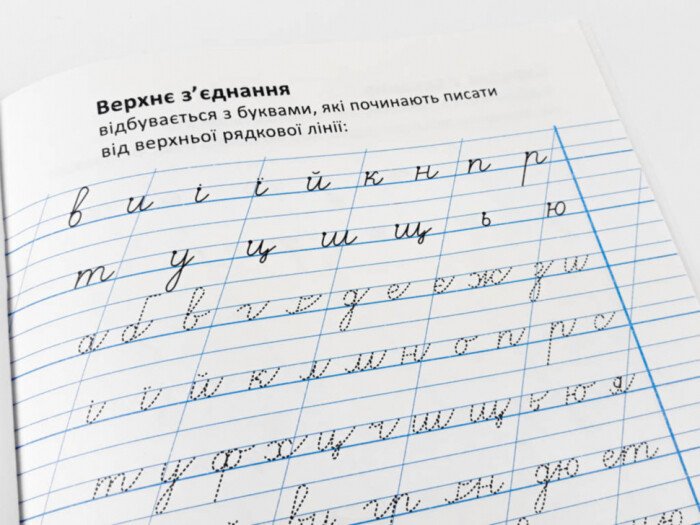 Верхнє з’єднання
відбувається з буквами, які починають писати
від верхньої рядкової лінії:
в и і ї й к н п р
т у ц ш щ ь ю
а б в г д е є ж з и
і ї й к л м н о п р с
т у ф х ц ч ш щ ь ю я
ви гр лн дю ет